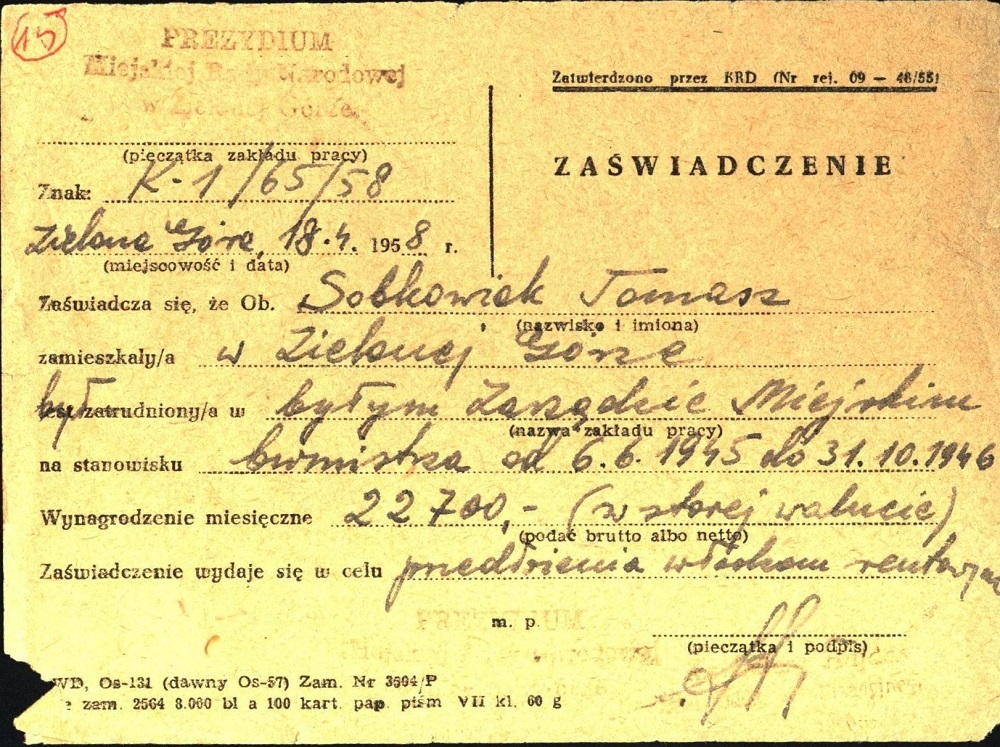 15
PREZYDIUM
Miejskiej Rady Narodowej
w Zielonej Górze
Zatwierdzono przez KRD (Nr rej. 09 — 48/55)
(pieczątka zakładu pracy)
ZAŚWIADCZENIE
Znak: K-1/65/58
Zielona Góra, 18.4. 1958 r.
(miejscowość i data)
Zaświadcza się, że Ob. Sobkowiak Tomasz
(nazwisko i imiona)
zamieszkały/a w Zielonej Górze
był zatrudniony/a w byłym Zarządzie Miejskim
(nazwa zakładu pracy)
na stanowisku bwmistrza od 6.6.1945 do 31.10.1946
Wynagrodzenie miesięczne 22700,- (w starej walucie)
(podać brutto albo netto)
Zaświadczenie wydaje się w celu przedłożenia władzom
m. p.
(pieczątka i podpis)
WD, Os-131 (dawny Os-57) Zam. Nr 3694/P
zam. 2564 8.000 bl a 100 kart. pap. piśm VII kl. 60 g